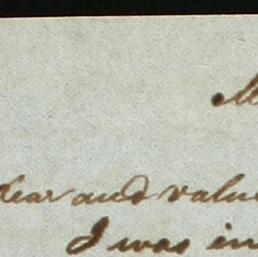 M
dear and valu
I was in